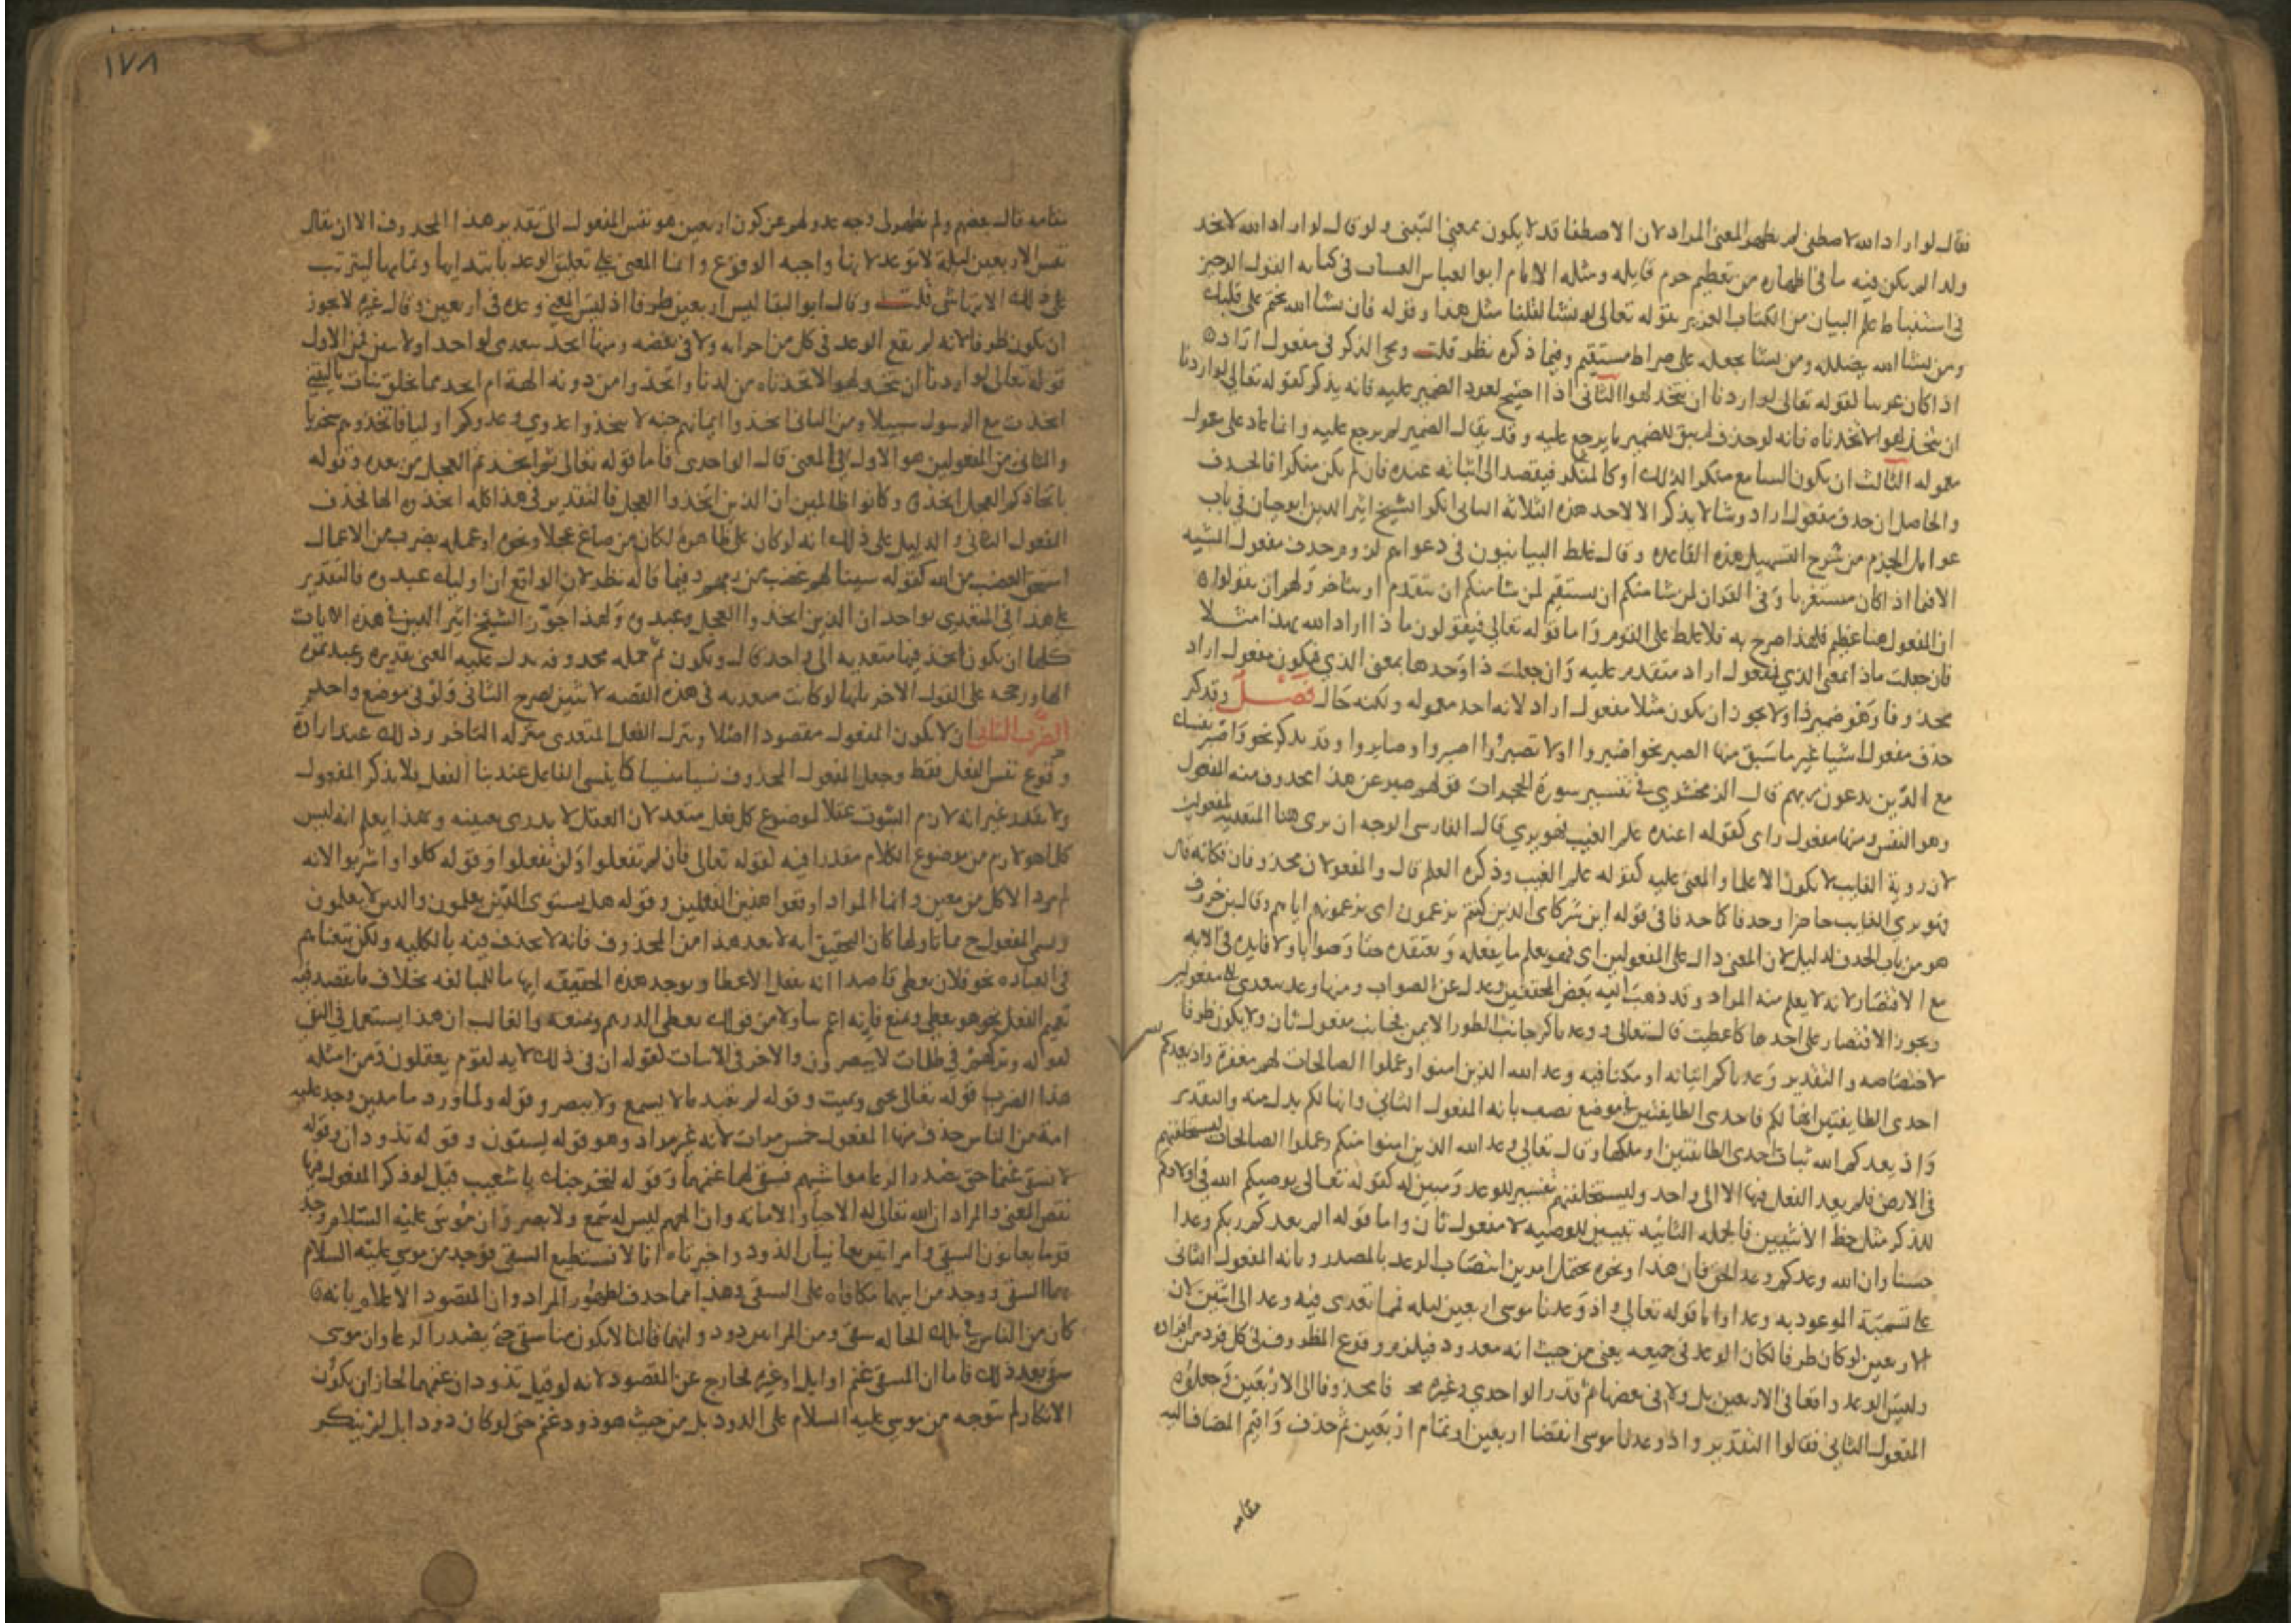 فقال لو اراد الله لاصطفى لم يظهر المعنى المراد لان الاصطفا قد لا يكون بمعنى التبنى ولو قال لو اراد الله لاتخذ
ولدا لم يكن فيه ما في اظهاره من تعظيم جرم قايله ومثله الامام ابو العباس في كتابه القول الوجيز
في استنباط علم البيان من الكتاب العزيز بقوله تعالى لو نشا لقلنا مثل هذا وقوله فان يشا الله يختم على قلبك
ومن يشا الله يضلله ومن يشا يجعله على صراط مستقيم وفيما ذكره نظر قلت ويجي الذكر في مفعول اراده
اذا كان عربيا لقوله تعالى لو اردنا ان نتخذ لهوا الثانى اذا احتيج لعود الضمير عليه فانه يذكر كقوله تعالى لو اردنا
ان نتخذ لهوا لاتخذناه فانه لو حذف لم يبق للضمير ما يرجع عليه وقد يقال الضمير لم يرجع عليه وانما عاد على معمول
معموله الثالث ان يكون السامع منكرا لذلك او كالمنكر فيقصد الى اثباته عنده فان لم يكن منكرا فالحذف
والحاصل ان حذف مفعول اراد وشا لا يذكر الا لاحد هذه الثلاثة الثانى انكر الشيخ اثير الدين ابو حيان في باب
عوامل الجزم من شرح التسهيل هذه القاعده وقال غلط البيانيون في دعواهم لزوم حذف مفعول المشيه
الا فيما اذا كان مستغربا وفي القران لمن شا منكم ان يستقيم لمن شا منكم ان يتقدم او يتاخر ولهم ان يقولوا
ان المفعول هنا عظيم فلهذا صرح به فلا غلط على القوم واما قوله تعالى فيقولون ماذا اراد الله بهذا مثلا
فان جعلت ماذا بمعنى الذي فمفعول اراد متقدم عليه وان جعلت ذا وحدها بمعنى الذي فيكون مفعول اراد
محذوفا وهو ضمير ذا ولا يجوز ان يكون مثلا مفعول اراد لانه احد معموليه ولكنه حال فصل وقد كثر
حذف مفعول اشيا غير ما سبق منها الصبر نحو اصبروا اولا تصبروا اصبروا وصابروا وقد يذكر نحو واصبر نفسك
مع الذين يدعون ربهم قال الزمخشري في تفسير سورة الحجرات قولهم صبر عن هذا محذوف منه المفعول
وهو النفس ومنها مفعول راى كقوله اعنده علم الغيب فهو يري قال الفارسى الوجه ان يرى هنا المتعدية لمفعولين
لان رؤية الغايب لا يكون الا علما والمعنى عليه كقوله علم الغيب وذكره العلم قال والمفعولان محذوفان فكانه قال
فهو يري الغايب حاضرا وحذفا كما حذفا في قوله اين شركاى الذين كنتم تزعمون اى تزعمونهم اياهم وقال بن خروف
هو من باب الحذف لدليل لان المعنى دال على المفعولين اى فهو يعلم ما يفعله ويعتقده حقا وصوابا ولا فايده في الايه
مع الاقتصار لانه لا يعلم منه المراد وقد ذهب اليه بعض المحققين وعدل عن الصواب ومنها وعد يتعدى الى مفعولين
ويجوز الاقتصار على احدهما كاعطيت قال تعالى وواعدناكم جانب الطور الايمن فجانب مفعول ثان ولا يكون ظرفا
لاختصاصه والتقدير وعدناكم اتيانه او مكثا فيه وعد الله الذين امنوا وعملوا الصالحات لهم مغفرة واذ يعدكم
احدى الطايفتين انها لكم فاحدى الطايفتين في موضع نصب بانه المفعول الثانى وانها لكم بدل منه والتقدير
واذ يعدكم الله ثبات احدى الطايفتين او ملكها وقال تعالى وعد الله الذين امنوا منكم وعملوا الصالحات ليستخلفنهم
في الارض فلم يعد الفعل فيها الا الى واحد وليستخلفنهم تفسير للوعد ومبين له كقوله تعالى يوصيكم الله في اولادكم
للذكر مثل حظ الانثيين فالجمله الثانيه تبيين للوصيه لا مفعول ثان واما قوله الم يعدكم ربكم وعدا
حسنا وان الله وعدكم وعد الحق فان هذا ونحوه يحتمل امرين انتصاب الوعد بالمصدر وبانه المفعول الثانى
على تسمية الموعود به وعدا واما قوله تعالى واذ وعدنا موسى اربعين ليله فمما تعدى فيه وعد الى اثنين لان
الاربعين لو كان ظرفا لكان الوعد في جميعه يعنى من حيث انه معدود فيلزم وقوع المظروف في كل فرد من افراده
وليس الوعد واقعا في الاربعين بل ولا في بعضها ثم قدر الواحدي وغيره محذوفا الى الاربعين وجعلوه
المفعول الثاني فقالوا التقدير واذ وعدنا موسى انقضا اربعين او تمام اربعين ثم حذف واقيم المضاف اليه
مقامه
١٧٨
مقامه قال بعضهم ولم يظهر لى وجه عدولهم عن كون اربعين هو نفس المفعول الى تقدير هذا المحذوف الا ان يقال
نفس الاربعين ليلة لا توعد لانها واجبة الوقوع وانما المعنى على تعليق الوعد بابتدايها وتمامها ليترتب
على ذلك الانتها شى قلت وقال ابو البقا ليس اربعين ظرفا اذ ليس المعنى وعده في اربعين وقال غيره لا يجوز
ان يكون ظرفا لانه لم يقع الوعد في كل من اجزايه ولا في بعضه ومنها اتخذ يتعدى لواحد او لاثنين فمن الاول
قوله تعالى لو اردنا ان نتخذ لهوا لاتخذناه من لدنا واتخذوا من دونه الهة ام اتخذ مما يخلق بنات يا ليتنى
اتخذت مع الرسول سبيلا ومن الثانى اتخذوا ايمانهم جنه لا تتخذوا عدوي وعدوكم اوليا فاتخذتموهم سخريا
والثانى من المفعولين هو الاول في المعنى قال الواحدى فاما قوله تعالى ثم اتخذتم العجل من بعده وقوله
باتخاذكم العجل اتخذوه وكانوا ظالمين ان الذين اتخذوا العجل فالتقدير في هذا كله اتخذوه الها فحذف
المفعول الثانى والدليل على ذلك انه لو كان على ظاهره لكان من صاغ عجلا ونحوه او عمله بضرب من الاعمال
استحق الغضب من الله كقوله سينالهم غضب من ربهم وفيما قاله نظر لان الواقع ان اوليك عبدوه فالتقدير
على هذا في المتعدي بواحد ان الذين اتخذوا العجل وعبدوه ولهذا جوز الشيخ اثير الدين في هذه الايات
كلها ان يكون اتخذ فيها متعديه الى واحد قال ويكون ثم جمله محذوفه يدل عليه المعنى تقديره وعبدتموه
الها ورجحه على القول الاخر بانها لو كانت متعديه في هذه القصه لاثنين لصرح بالثانى ولو في موضع واحد
الضرب الثانى ان لا يكون المفعول مقصودا اصلا وينزل الفعل المتعدى منزلة القاصر وذلك عند ارادة
وقوع نفس الفعل فقط وجعل المفعول المحذوف نسيا منسيا كما ينسى الفاعل عند بنا الفعل فلا يذكر المفعول
ولا يقدر غير انه لازم الثبوت عقلا لموضوع كل فعل متعد لان العقل لا يدرى بعينه وبهذا يعلم انه ليس
كل ما هو لازم من موضوع الكلام مقدرا فيه كقوله تعالى فان لم تفعلوا ولن تفعلوا وقوله كلوا واشربوا لانه
لم يرد الاكل من معين وانما المراد اوقعوا هذين الفعلين وقوله هل يستوى الذين يعلمون والذين لا يعلمون
ويسمى المفعول ح مماتا ولما كان التحقيق انه لا يعد هذا من المحذوف فانه لا حذف فيه بالكليه ولكن تبعناهم
في العباره نحو فلان يعطى قاصدا انه يفعل الاعطا ويوجد هذه الحقيقه ايهاما للمبالغه بخلاف ما يقصد فيه
تعميم الفعل نحو هو يعطى ويمنع فانه اعم تناولا من قولك يعطى الدرهم ويمنعه والغالب ان هذا يستعمل في النفى
كقوله وتركهم في ظلمات لا يبصرون والاخر في الاثبات كقوله ان في ذلك لايه لقوم يعقلون ومن امثله
هذا الضرب قوله تعالى يحى ويميت وقوله لم تعبد ما لا يسمع ولا يبصر وقوله ولما ورد ما مدين وجد عليه
امة من الناس حذف منها المفعول خمس مرات لانه غير مراد وهو قوله يسقون وقوله تذودان وقوله
لا نسقى غنمنا حتى يصدر الرعا مواشيهم فسقى لهما غنمهما وقوله لنخرجنك يا شعيب قيل لو ذكر المفعول فيها
نقص المعنى والمراد ان الله تعالى له الاحيا والاماته وان الههم ليس له سمع ولا بصر وان موسى عليه السلام وجد
قوما يعانون السقى وامراتين تعانيان الذود واخبرتاه انا لا نستطيع السقى فوجد من موسى عليه السلام
لهما السقى ووجد من ابيهما مكافاه على السقى وهذا مما حذف لظهور المراد وان المقصود الاعلام بانه
كان من الناس في تلك الحاله سقى ومن المراتين ذود وانهما قالتا لا يكون منا سقى حتى يصدر الرعا وان موسى
سقى بعد ذلك فاما ان المسقى غنم او ابل او غيره فخارج عن المقصود لانه لو قيل تذودان غنمهما لجاز ان يكون
الانكار لم يتوجه من موسى عليه السلام على الذود بل من حيث هو ذود غنم حتى لو كان ذود ابل لم ينكر